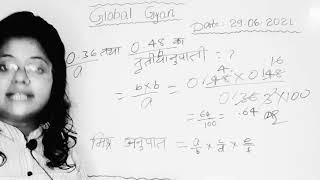 Global Gyan
Date: 29.06.2021
0.36 तथा 0.48 का
a b
तृतीयानुपाती = ?
= b×b/a = 0.48 × 0.48 / 0.36 3 × 100
4 16
= 64/100 = .64
मिश्र अनुपात = a/b × c/d × e/f